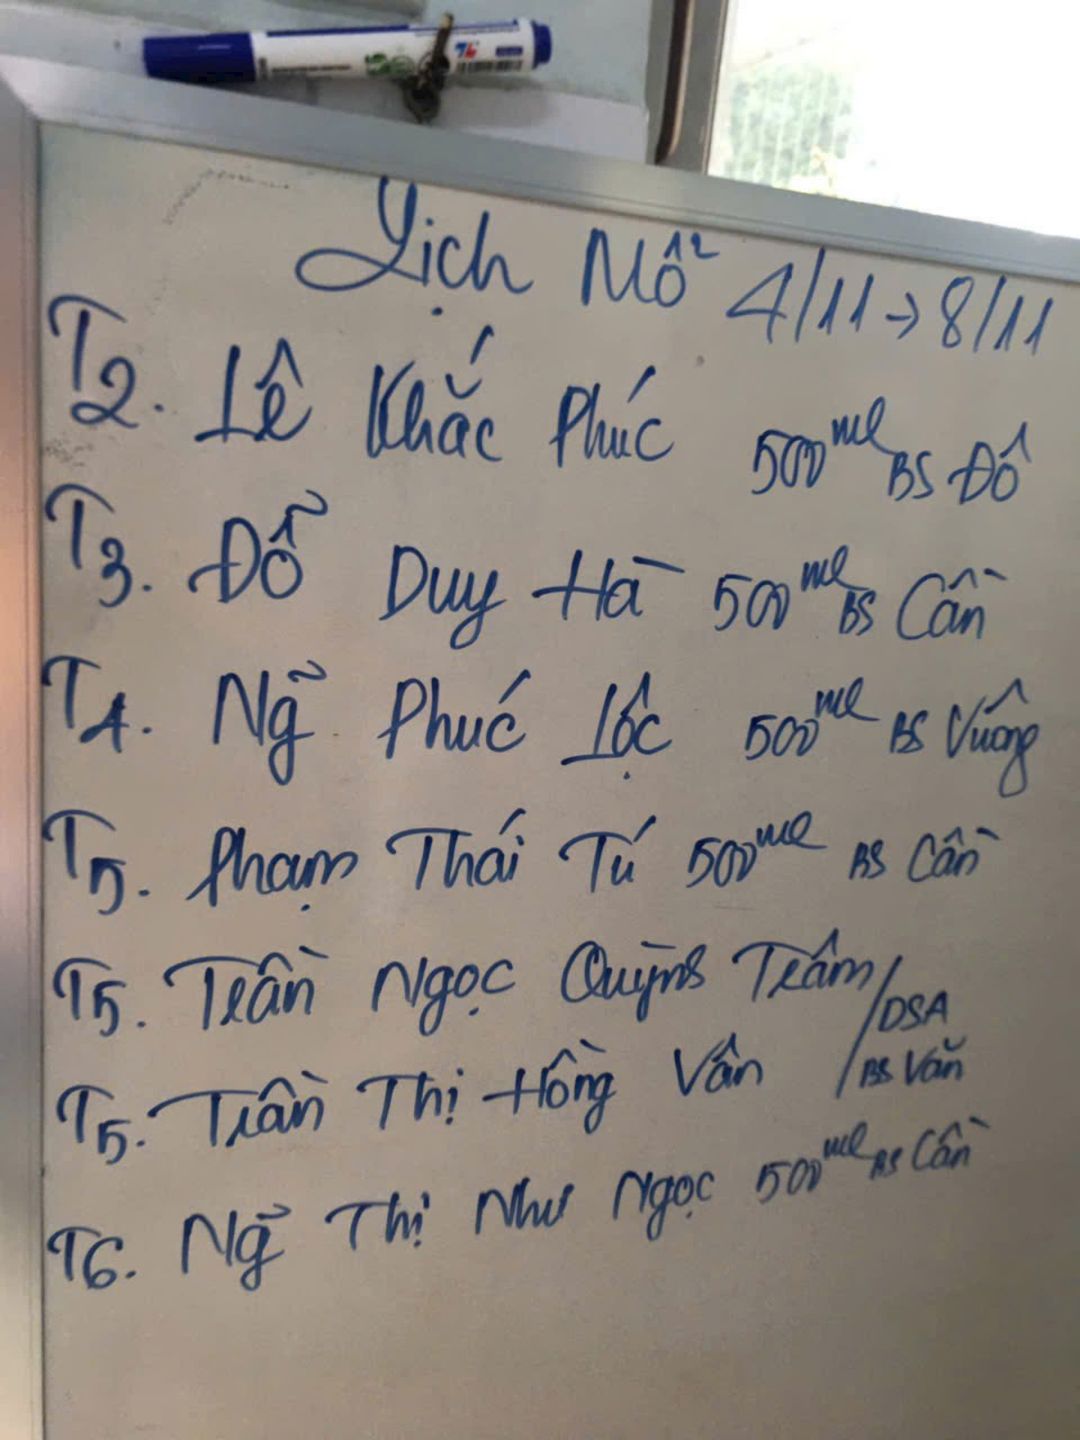 Lịch Mổ 4/11 → 8/11
T2. Lê Khắc Phúc 500ml BS Đô
T3. Đỗ Duy Hà 500ml BS Cần
T4. Ng̃ Phúc Lộc 500ml BS Vương
T5. Phạm Thái Tú 500ml BS Cần
T5. Trần Ngọc Quỳnh Trâm / DSA
T5. Trần Thị Hồng Vân / BS Văn
T6. Ng̃ Thị Như Ngọc 500ml BS Cần